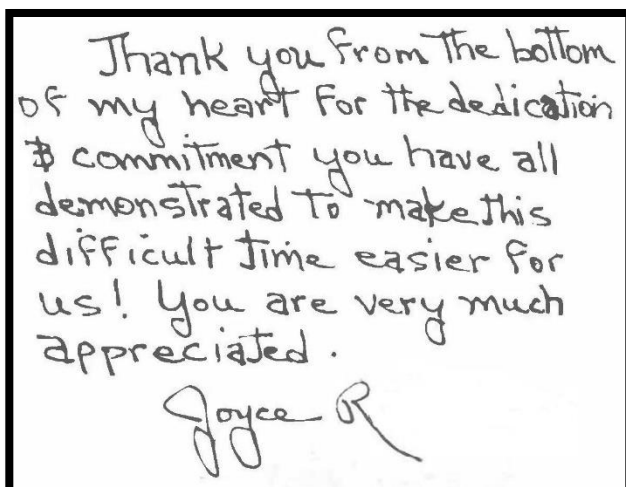 Thank you from the bottom
of my heart for the dedication
& commitment you have all
demonstrated to make this
difficult time easier for
us! You are very much
appreciated.
Joyce R